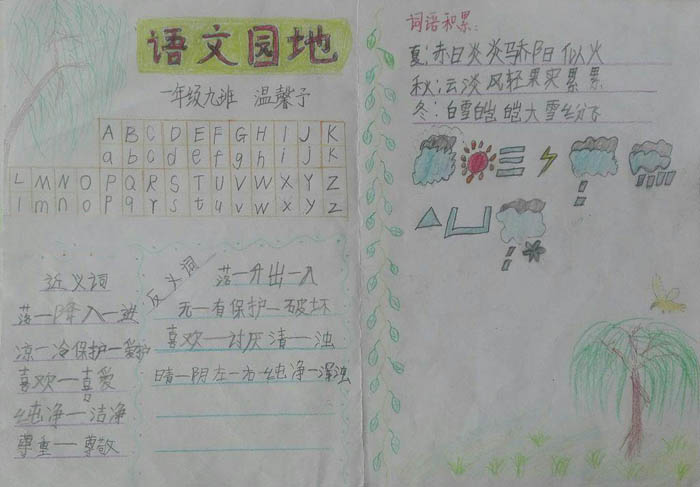 语文园地
一年级九班 温馨予
A B C D E F G H I J K
a b c d e f g h i j k
L M N O P Q R S T U V W X Y Z
l m n o p q r s t u v w x y z
近义词
落一降入一进
凉一冷保护一爱护
喜欢一喜爱
纯净一洁净
尊重一尊敬
反义词
落一升出一入
无一有保护一破坏
喜欢一讨厌清一浊
晴一阴左一右纯净一浑浊
词语积累:
夏:赤日炎炎骄阳似火
秋:云淡风轻果实累累
冬:白雪皑皑大雪纷飞